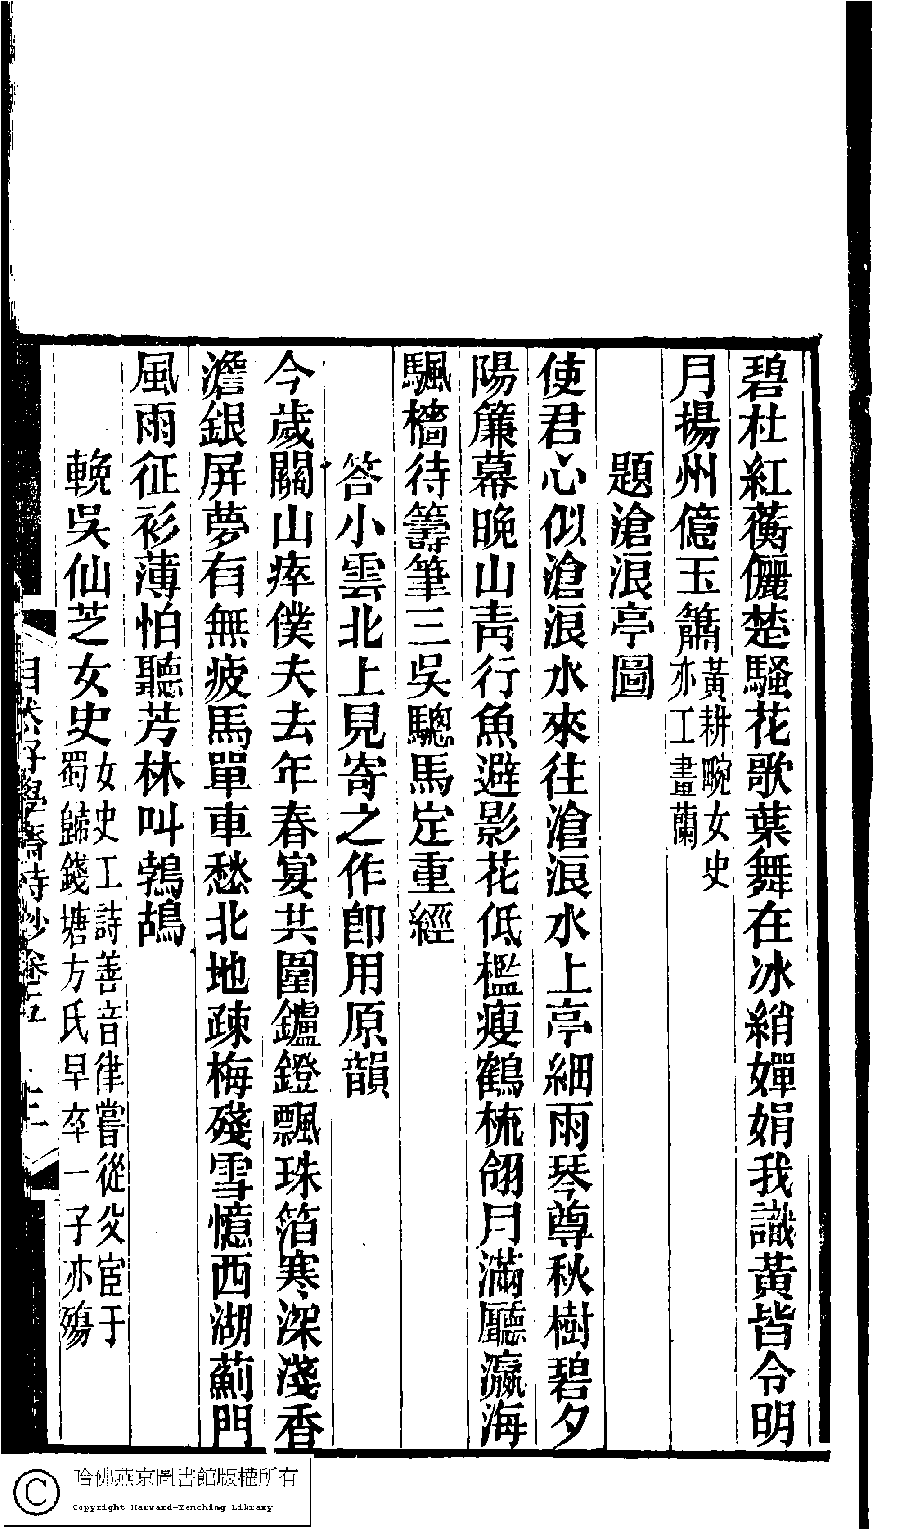 碧杜紅蘅儷楚騷花歌葉舞在冰綃嬋娟我識黃皆令明
月揚州億玉簫黃耕畹女史亦工畫蘭
題滄浪亭圖
使君心似滄浪水來往滄浪水上亭細雨琴尊秋樹碧夕
陽簾幕晚山靑行魚避影花低檻瘦鶴梳翎月滿廳瀛海
颿檣待籌筆三吳驄馬定重經
答小雲北上見寄之作卽用原韻
今歲關山瘁僕夫去年春宴共圍鑪鐙飄珠箔寒深淺香
澹銀屏夢有無疲馬單車愁北地疎梅殘雪憶西湖薊門
風雨征衫薄怕聽芳林叫鷓鴣
輓吳仙芝女史女史工詩善音律嘗從父宦于蜀歸錢塘方氏早卒一子亦殤
自然好學齋詩鈔卷五
哈佛燕京圖書館版權所有
Copyright Harvard-Yenching Library